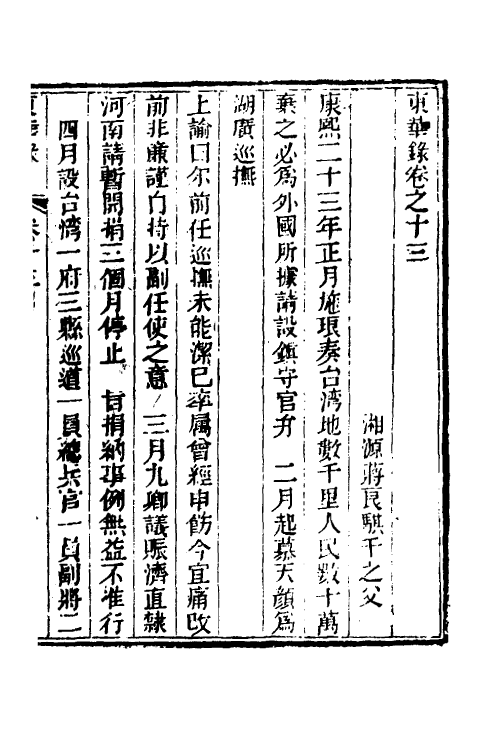 東華錄卷之十三
湘源蔣良騏千之父
康熙二十三年正月施琅奏台湾地數千里人民數十萬
棄之必為外國所據請設鎮守官弁　二月起慕天顏為
湖廣巡撫
上諭曰尔前任巡撫未能潔巳率属曾經申飭今宜痛改
前非廉謹自持以副任使之意　三月九卿議賑濟直隸
河南請暫開捐三個月停止　旨捐納事例無益不准行
四月設台湾一府三縣巡道一員總兵官一員副將二